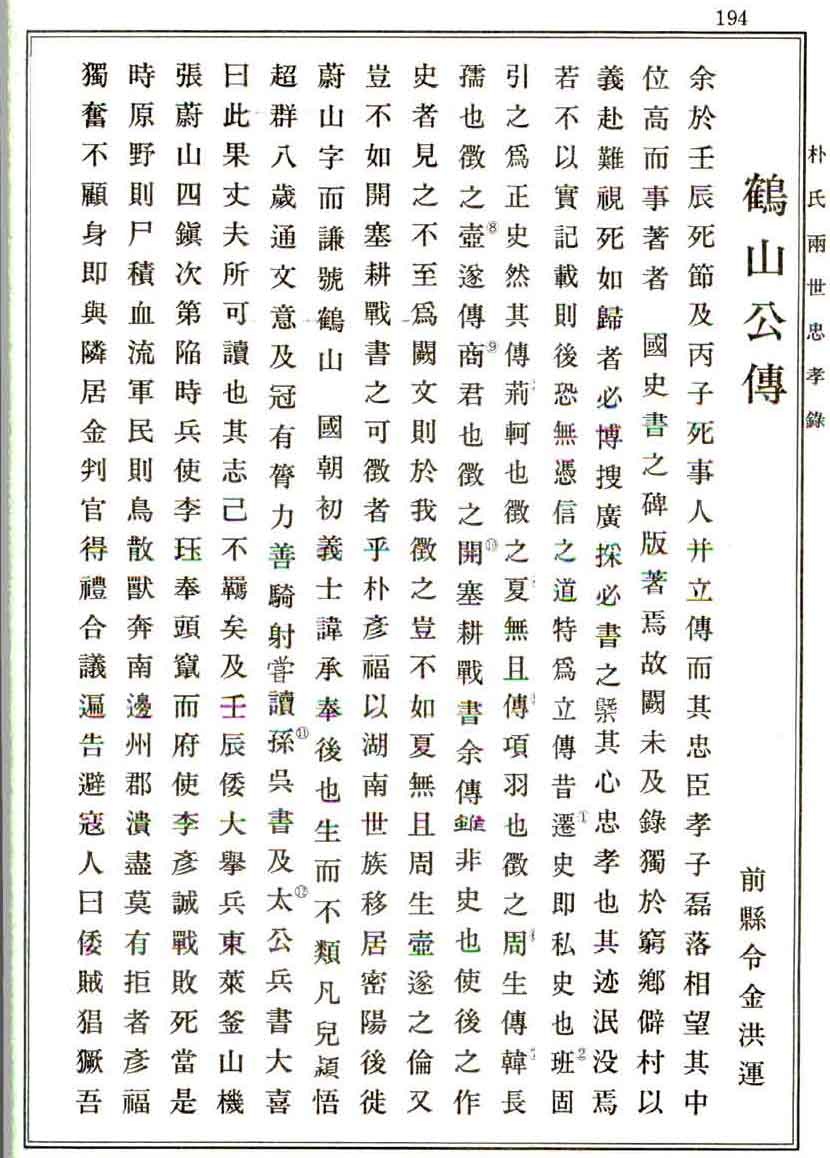 194
朴氏兩世忠孝錄
鶴山公傳
前縣令金洪運
余於壬辰死節及丙子死事人并立傳而其忠臣孝子磊落相望其中
位高而事著者 國史書之碑版著焉故闕未及錄獨於窮鄉僻村以
義赴難視死如歸者必博搜廣採必書之槩其心忠孝也其迹泯没焉
若不以實記載則後恐無憑信之道特爲立傳昔①遷史即私史也②班固
引之爲正史然其傳荊軻也徵之夏無且傳項羽也徵之周生傳韓長
孺也徵之⑧壺遂傳⑨商君也徵之⑩開塞耕戰書余傳雖非史也使後之作
史者見之不至爲闕文則於我徵之豈不如夏無且周生壺遂之倫又
豈不如開塞耕戰書之可徵者乎朴彥福以湖南世族移居密陽後徙
蔚山字而謙號鶴山 國朝初義士諱承奉後也生而不類凡兒穎悟
超群八歲通文意及冠有膂力善騎射嘗讀⑪孫吳書及⑫太公兵書大喜
曰此果丈夫所可讀也其志己不羈矣及壬辰倭大擧兵東萊釜山機
張蔚山四鎭次第陷時兵使李珏奉頭竄而府使李彥誠戰敗死當是
時原野則尸積血流軍民則鳥散獸奔南邊州郡潰盡莫有拒者彥福
獨奮不顧身即與隣居金判官得禮合議遍告避寇人曰倭賊猖獗吾